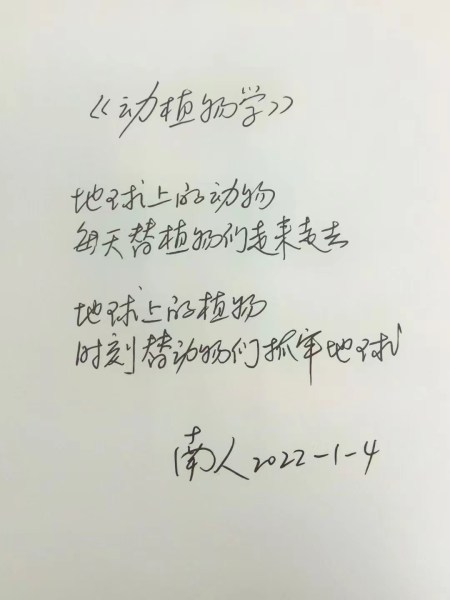 《动植物学》
地球上的动物
每天替植物们走来走去
地球上的植物
时刻替动物们抓牢地球
南人2022-1-4